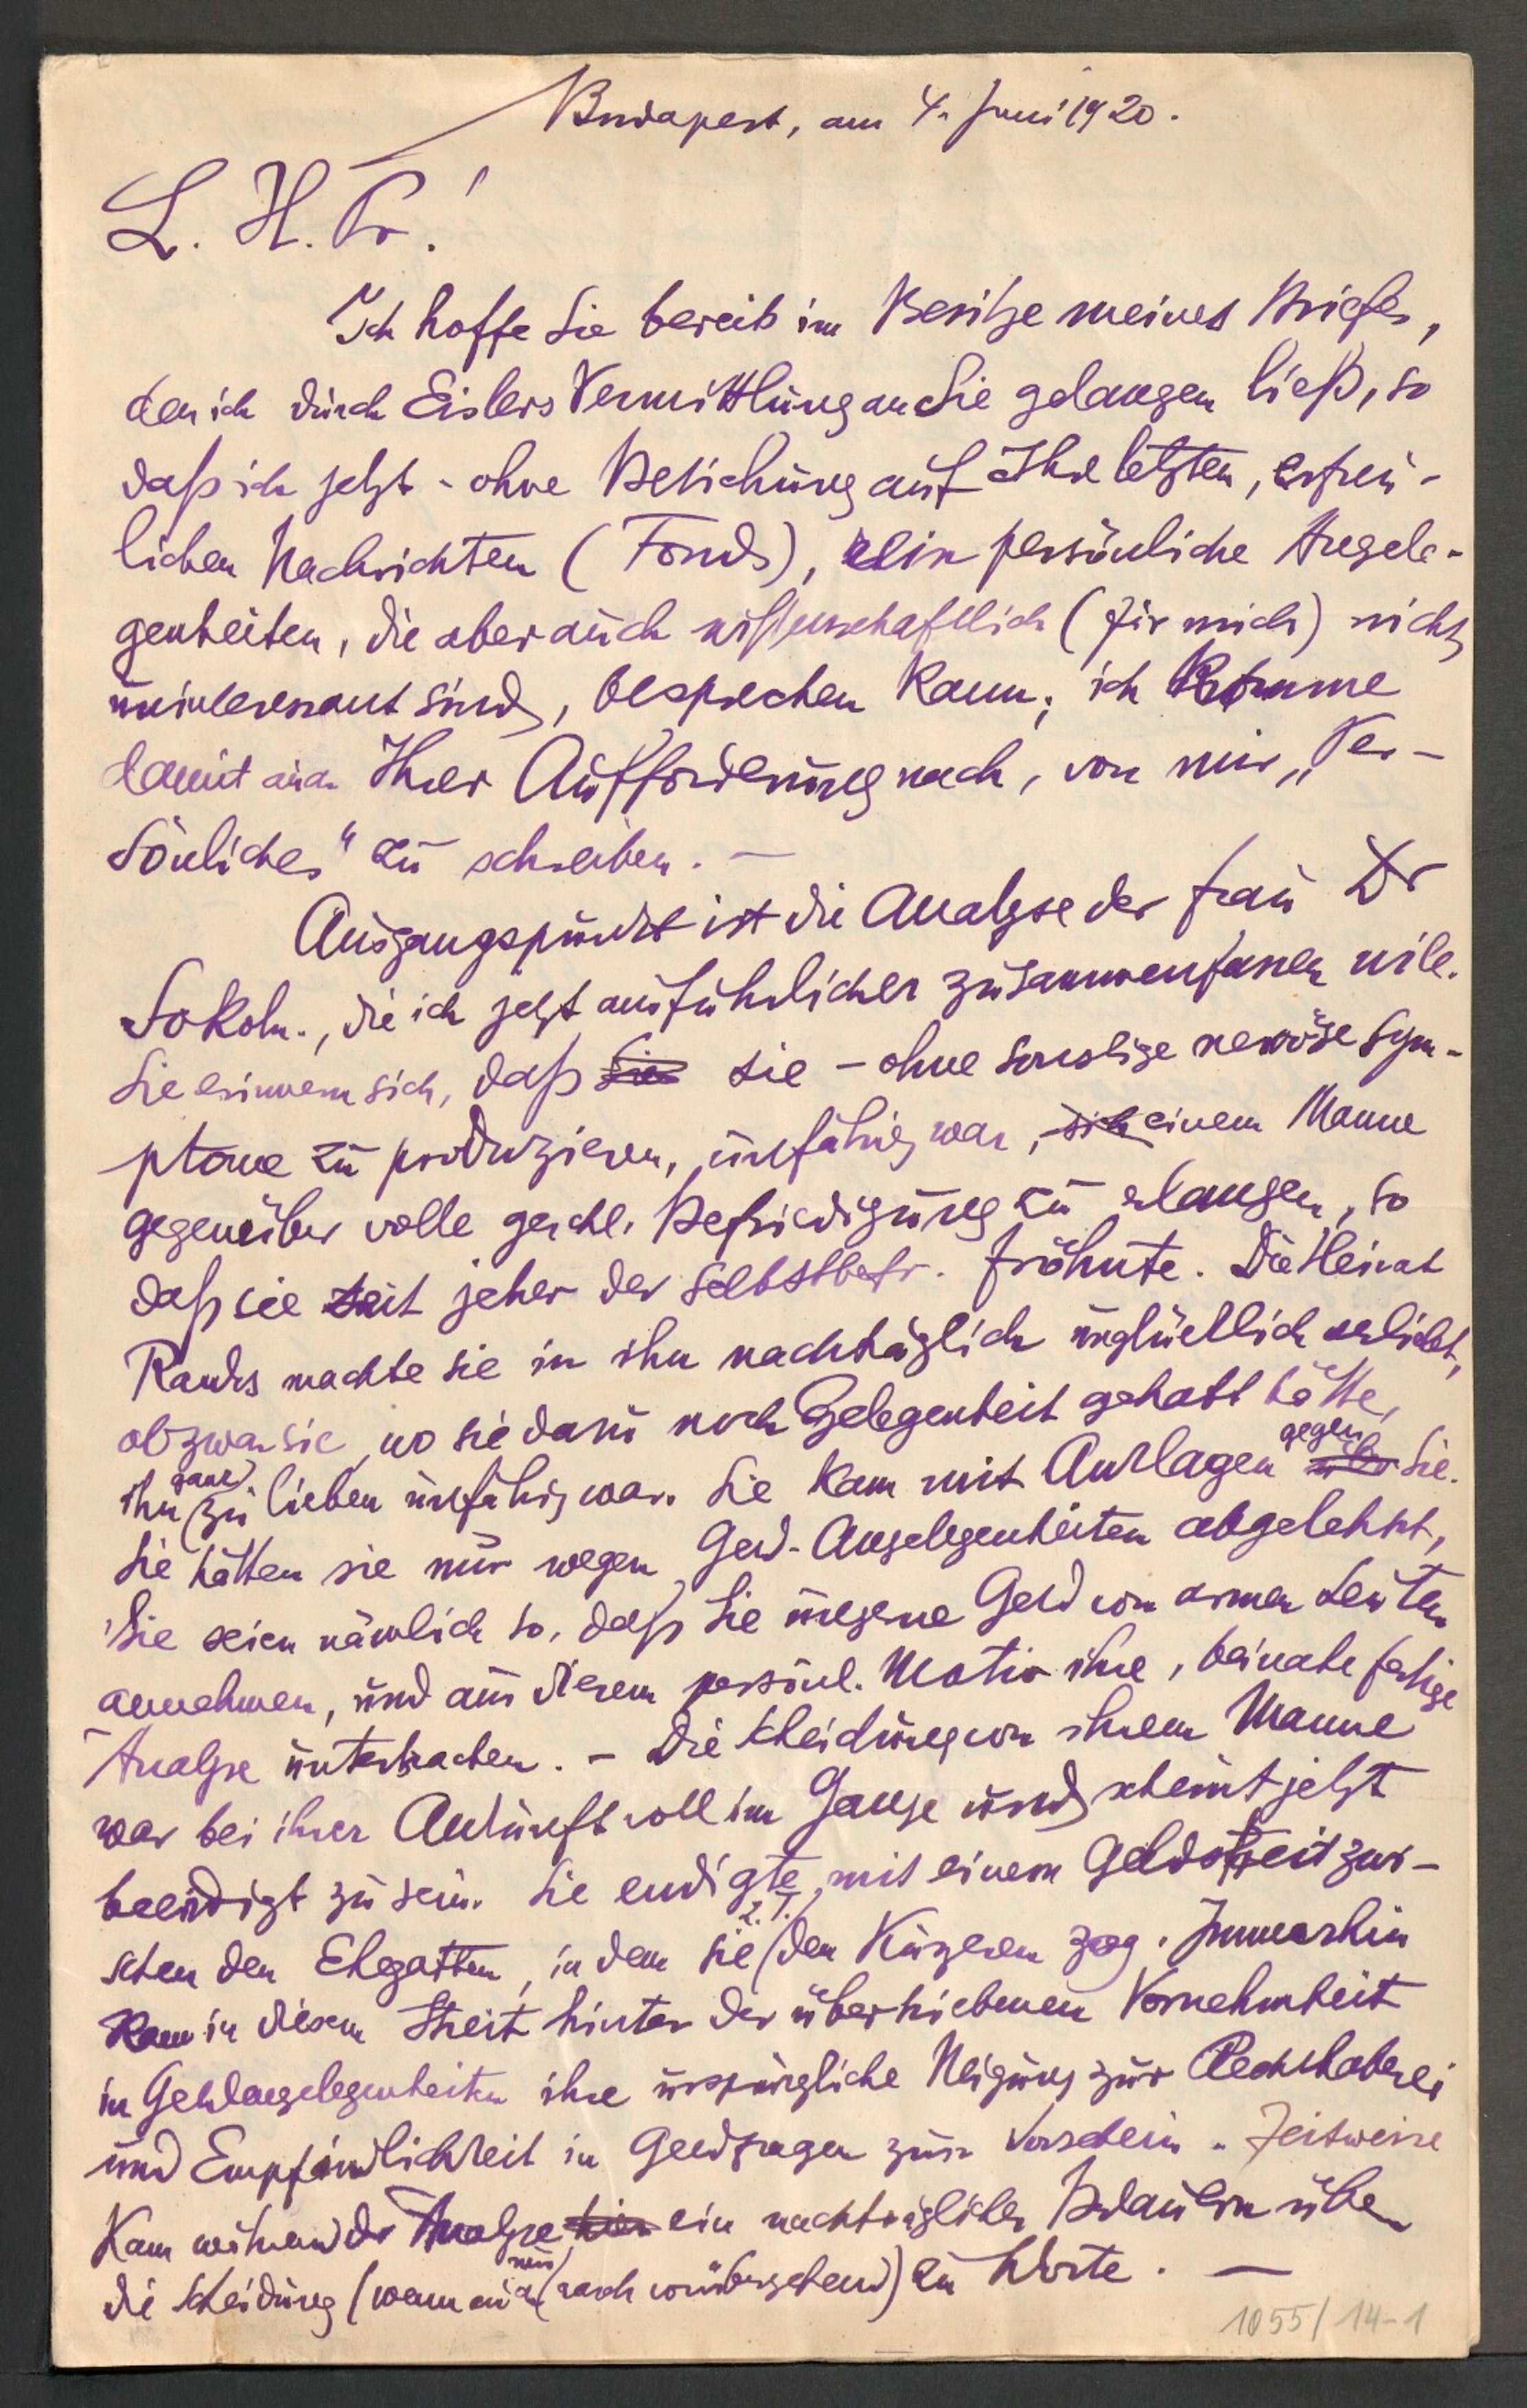 Budapest, am 4. Juni 1920.
L. H. Pr.!
Ich hoffe Sie bereits im Besitze meines Briefes,
den ich durch Eislers Vermittlung an Sie gelangen ließ, so
daß ich jetzt - ohne Beziehung auf Ihre letzten, erfreu-
lichen Nachrichten (Fonds), rein persönliche Angele-
genheiten, die aber auch wissenschaftlich (für mich) nicht
uninteressant sind, besprechen kann; ich komme
damit auch Ihrer Aufforderung nach, von mir „Per-
sönliches" zu schreiben. —
Ausgangspunkt ist die Analyse der Frau Dr
Sokoln., die ich jetzt ausführlicher zusammenfassen will.
Sie erinnern sich, daß Sie sie - ohne sonstige nervöse Sym-
ptome zu produzieren, unfähig war, sich einem Manne
gegenüber volle geschl. Befriedigung zu erlangen, so
daß sie seit jeher der Selbstbefr. fröhnte. Die Heirat
Ranks machte sie in ihn nachträglich unglücklich verliebt,
obzwar sie, wo sie dazu noch Gelegenheit gehabt hätte,
ihn ganz zu lieben unfähig war. Sie kam mit Anklagen über gegen Sie.
Sie hätten sie nur wegen Geld-Angelegenheiten abgelehnt,
Sie seien nämlich so, daß Sie ungerne Geld von armen Leuten
annehmen, und aus diesem persönl. Motiv ihre, beinahe fertige
Analyse unterbrachen. - Die Scheidung von ihrem Manne
war bei ihrer Ankunft voll im Gange und scheint jetzt
beendigt zu sein. Sie endigte mit einem Geldstreit zwi-
schen den Ehegatten, in dem sie z. T. den Kürzeren zog. Immerhin
kam in diesem Streit hinter der übertriebenen Vornehmheit
in Geldangelegenheiten ihre ursprüngliche Neigung zur Rechthaberei
und Empfindlichkeit in Geldfragen zum Vorschein. Zeitweise
kam während der Analyse hier ein nachträgliches Bedauern über
die Scheidung (wenn auch nur rasch vorübergehend) zu Worte. —
1055/14-1